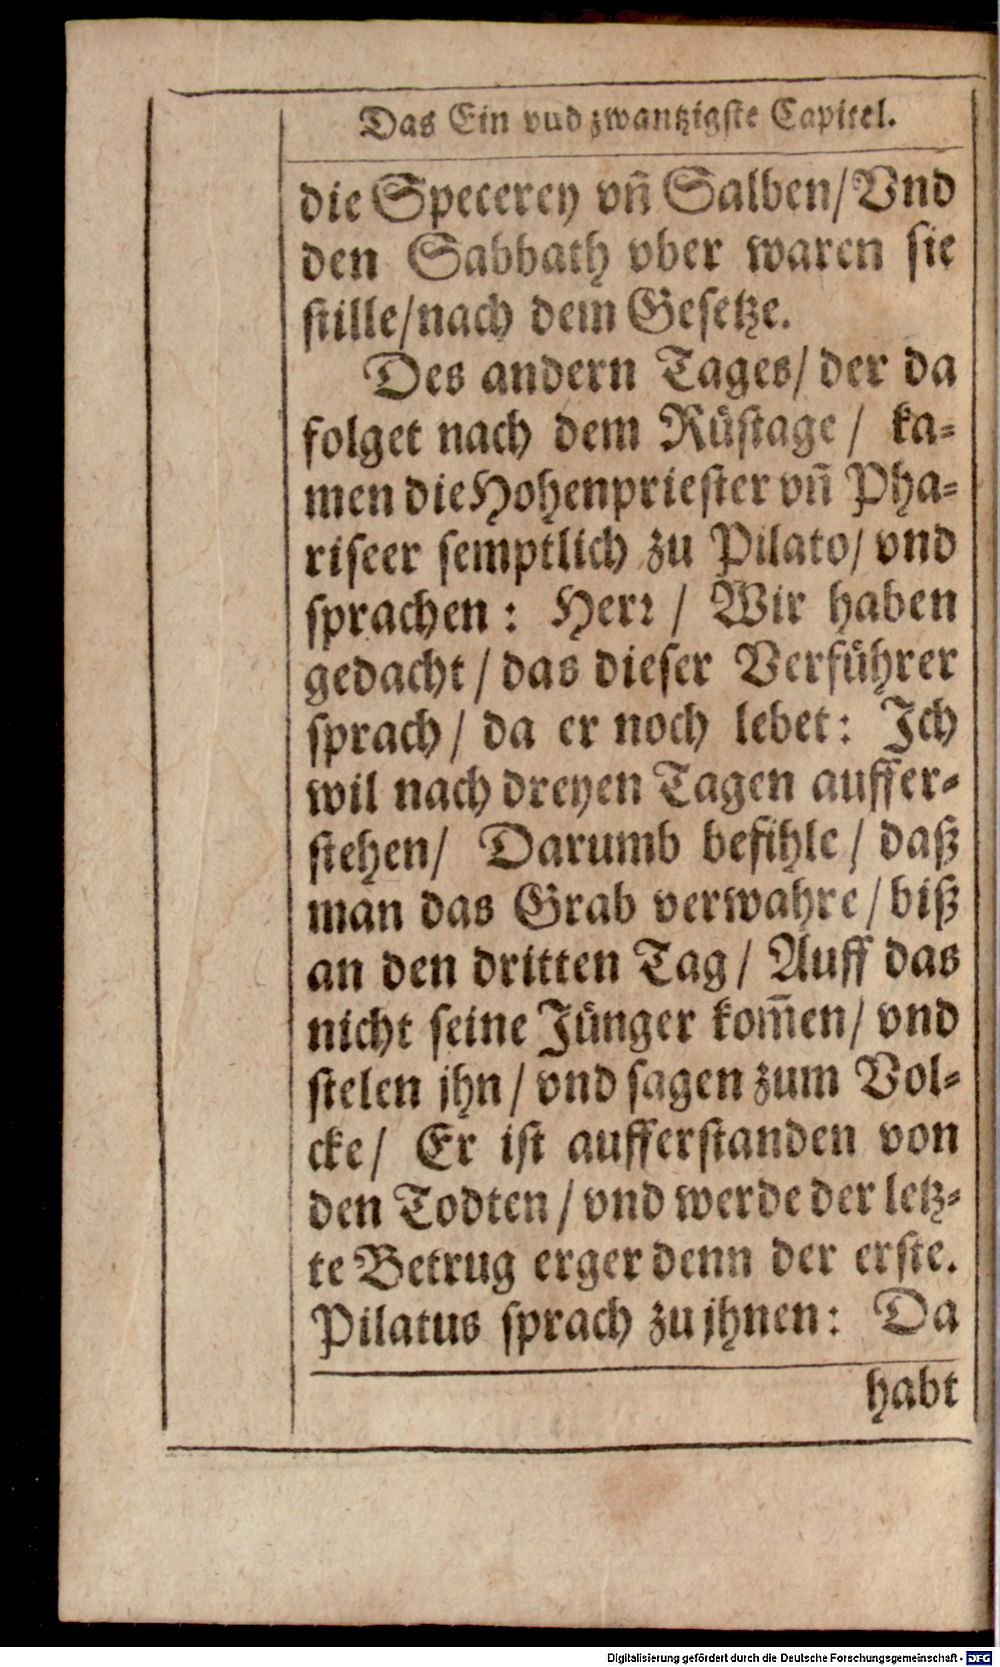 Das Ein vud zwantzigste Capitel.
die Specerey vñ Salben/Vnd
den Sabbath vber waren sie
stille/nach dem Gesetze.
Des andern Tages/ der da
folget nach dem Rüstage / ka-
men die Hohenpriester vñ Pha-
riseer semptlich zu Pilato/ vnd
sprachen: Herr / Wir haben
gedacht / das dieser Verführer
sprach / da er noch lebet: Ich
wil nach dreyen Tagen auffer-
stehen/ Darumb befihle / daß
man das Grab verwahre / biß
an den dritten Tag / Auff das
nicht seine Jünger kom̃en/ vnd
stelen jhn / vnd sagen zum Vol-
cke/ Er ist aufferstanden von
den Todten / vnd werde der letz-
te Betrug erger denn der erste.
Pilatus sprach zu jhnen: Da
habt
Digitalisierung gefördert durch die Deutsche Forschungsgemeinschaft - DFG